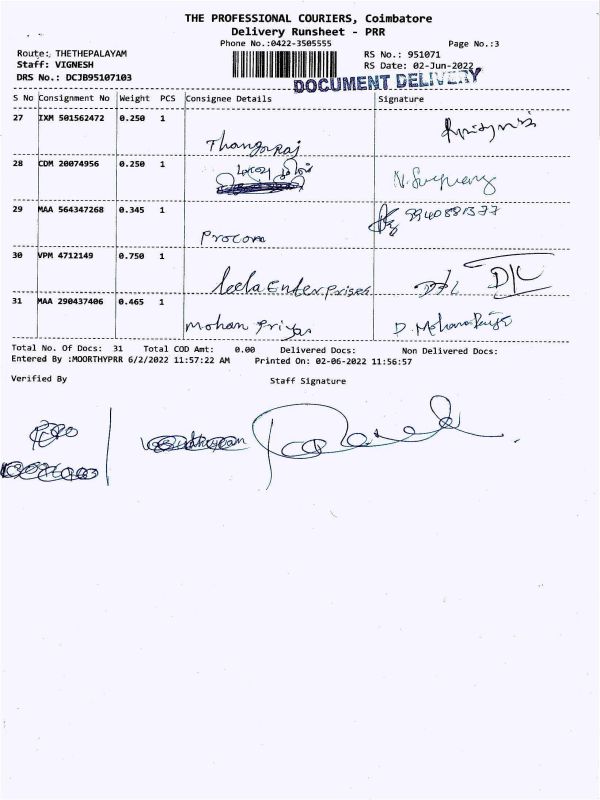 THE PROFESSIONAL COURIERS, Coimbatore
Delivery Runsheet - PRR
Phone No.:0422-3505555
Page No.:3
Route: THETHEPALAYAM
RS No.: 951071
Staff: VIGNESH
RS Date: 02-Jun-2022
DRS No.: DCJB95107103
DOCUMENT DELIVERY
S No Consignment No Weight PCS Consignee Details Signature
27 IXM 501562472 0.250 1
Thangaraj
28 CDM 20074956 0.250 1
29 MAA 564347268 0.345 1
9940881377
Procom
30 VPM 4712149 0.750 1
leela Enterprises
31 MAA 290437406 0.465 1
mohan Priya
D. Mohana Priya
Total No. Of Docs: 31 Total COD Amt: 0.00 Delivered Docs: Non Delivered Docs:
Entered By :MOORTHYPRR 6/2/2022 11:57:22 AM Printed On: 02-06-2022 11:56:57
Verified By
Staff Signature